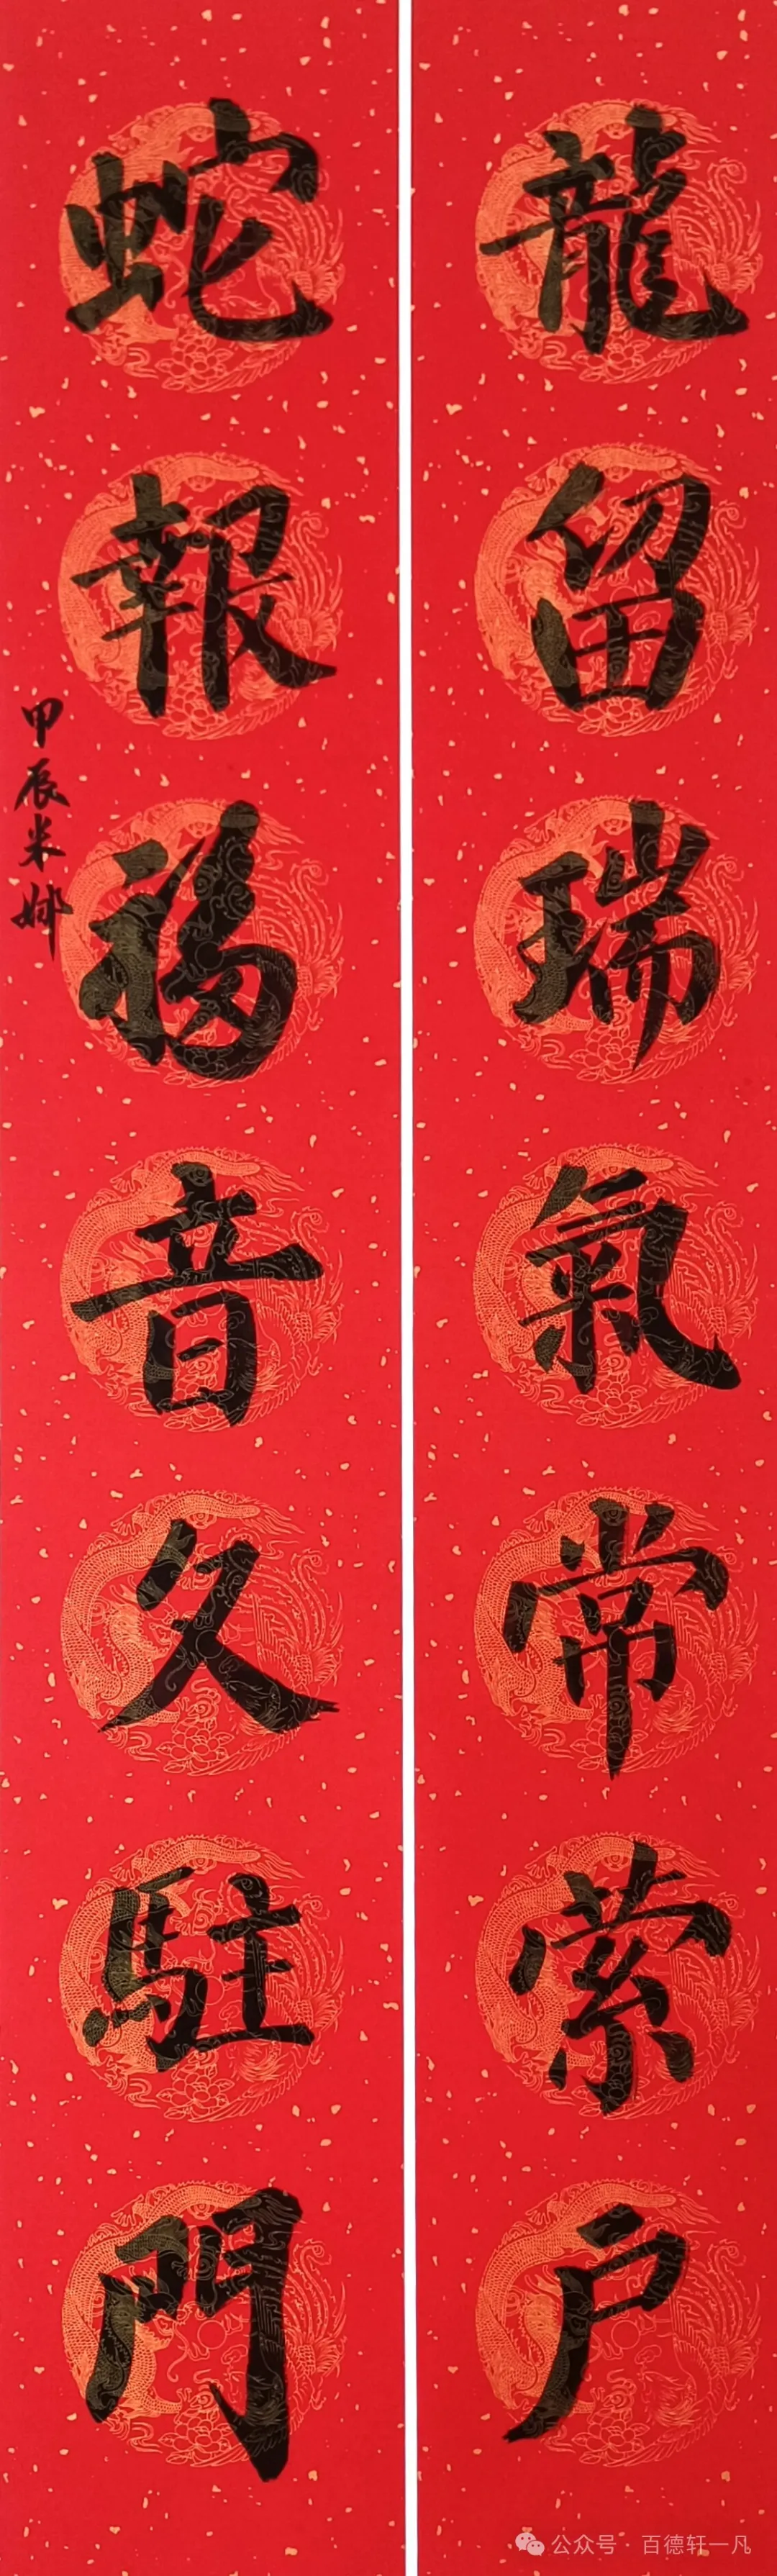 龍留瑞氣常縈户
蛇報福音久駐門
甲辰米娜
公众号·百德轩一凡